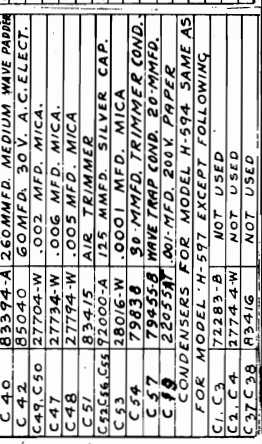 C 40 83394-A 260MMFD. MEDIUM WAVE PADDER
C 42 85040 60MFD. 30V. A.C. ELECT.
C49, C50 27704-W .002 MFD. MICA.
C 47 27734-W .006 MFD. MICA.
C 48 27794-W .005 MFD. MICA
C 51 83415 AIR TRIMMER
C52, C56, C55 92000-A 125 MMFD. SILVER CAP.
C 53 28016-W .0001 MFD. MICA
C 54 79838 30-MMFD. TRIMMER COND.
C 57 79455-B WAVE TRAP COND. 20-MMFD.
MFD. 200V. PAPER
CONDENSERS FOR MODEL H-594 SAME AS
FOR MODEL H-597 EXCEPT FOLLOWING
C1, C3 72283-B NOT USED
C2, C4 27744-W NOT USED
C37 C38 83416 NOT USED